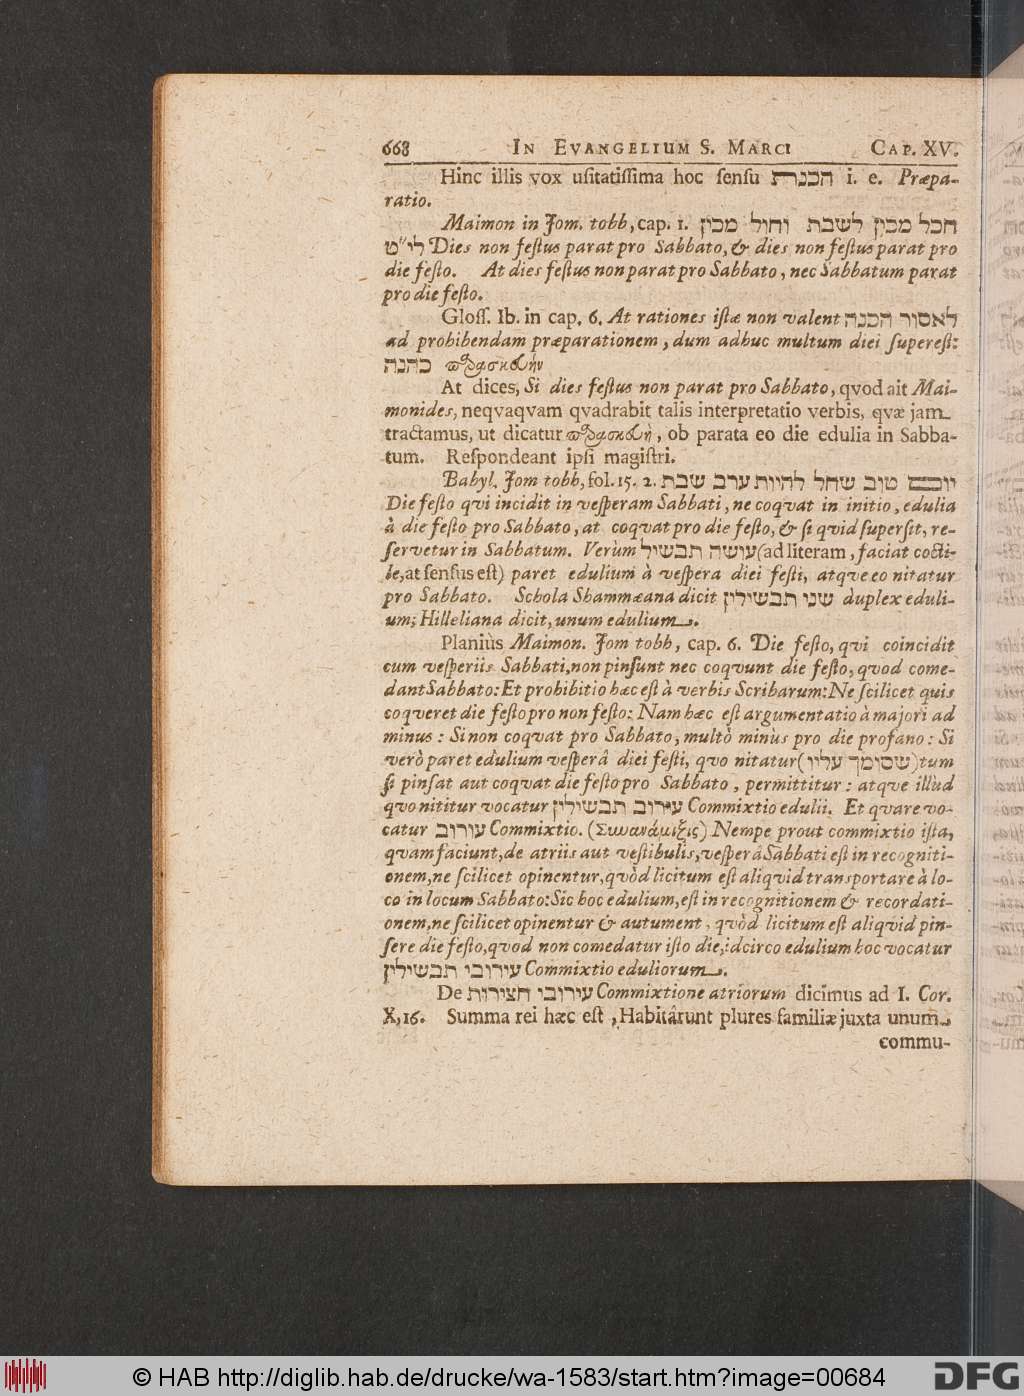 668 IN EVANGELIUM S. MARCI CAP. XV.
Hinc illis vox usitatissima hoc sensu הכנרת i. e. Præpa-
ratio.
Maimon in Jom. tobb, cap. 1. חכל מכון לשבת וחול מכון
לי״ט Dies non festus parat pro Sabbato, & dies non festus parat pro
die festo. At dies festus non parat pro Sabbato, nec Sabbatum parat
pro die festo.
Gloss. Ib. in cap. 6. At rationes istæ non valent לאסור הכנה
ad prohibendam præparationem, dum adhuc multum diei superest:
כהנת παρασκευὴν
At dices, Si dies festus non parat pro Sabbato, qvod ait Mai-
monides, neqvaqvam qvadrabit talis interpretatio verbis, qvæ jam
tractamus, ut dicatur παρασκευὴ, ob parata eo die edulia in Sabba-
tum. Respondeant ipsi magistri.
Babyl. Jom tobb, fol. 15. 2. יום טוב שחל להיות ערב שבת
Die festo qvi incidit in vesperam Sabbati, ne coqvat in initio, edulia
à die festo pro Sabbato, at coqvat pro die festo, & si qvid supersit, re-
servetur in Sabbatum. Verùm עושה תבשיל (ad literam, faciat cocti-
le, at sensus est) paret edulium à vespera diei festi, atqve eo nitatur
pro Sabbato. Schola Shammæana dicit שני תבשילין duplex eduli-
um; Hilleliana dicit, unum edulium.
Planiùs Maimon. Jom tobb, cap. 6. Die festo, qvi coincidit
cum vesperiis Sabbati, non pinsunt nec coqvunt die festo, qvod come-
dant Sabbato: Et prohibitio hæc est à verbis Scribarum: Ne scilicet quis
coqveret die festo pro non festo: Nam hæc est argumentatio à majori ad
minus: Si non coqvat pro Sabbato, multò minùs pro die profano: Si
verò paret edulium vesperâ diei festi, qvo nitatur (שסומך עליו) tum
si pinsat aut coqvat die festo pro Sabbato, permittitur: atqve illud
qvo nititur vocatur עירוב תבשילין Commixtio edulii. Et qvare vo-
catur עורוב Commixtio. (Συνανάμιξις) Nempe prout commixtio ista,
qvam faciunt, de atriis aut vestibulis, vesperâ Sabbati est in recogniti-
onem, ne scilicet opinentur, qvòd licitum est aliqvid transportare à lo-
co in locum Sabbato: Sic hoc edulium, est in recognitionem & recordati-
onem, ne scilicet opinentur & autument, qvòd licitum est aliqvid pin-
sere die festo, qvod non comedatur isto die, idcirco edulium hoc vocatur
עירובי תבשילין Commixtio eduliorum.
De עירובי חצירות Commixtione atriorum dicimus ad I. Cor.
X, 16. Summa rei hæc est, Habitârunt plures familiæ juxta unum
commu-
© HAB http://diglib.hab.de/drucke/wa-1583/start.htm?image=00684
DFG